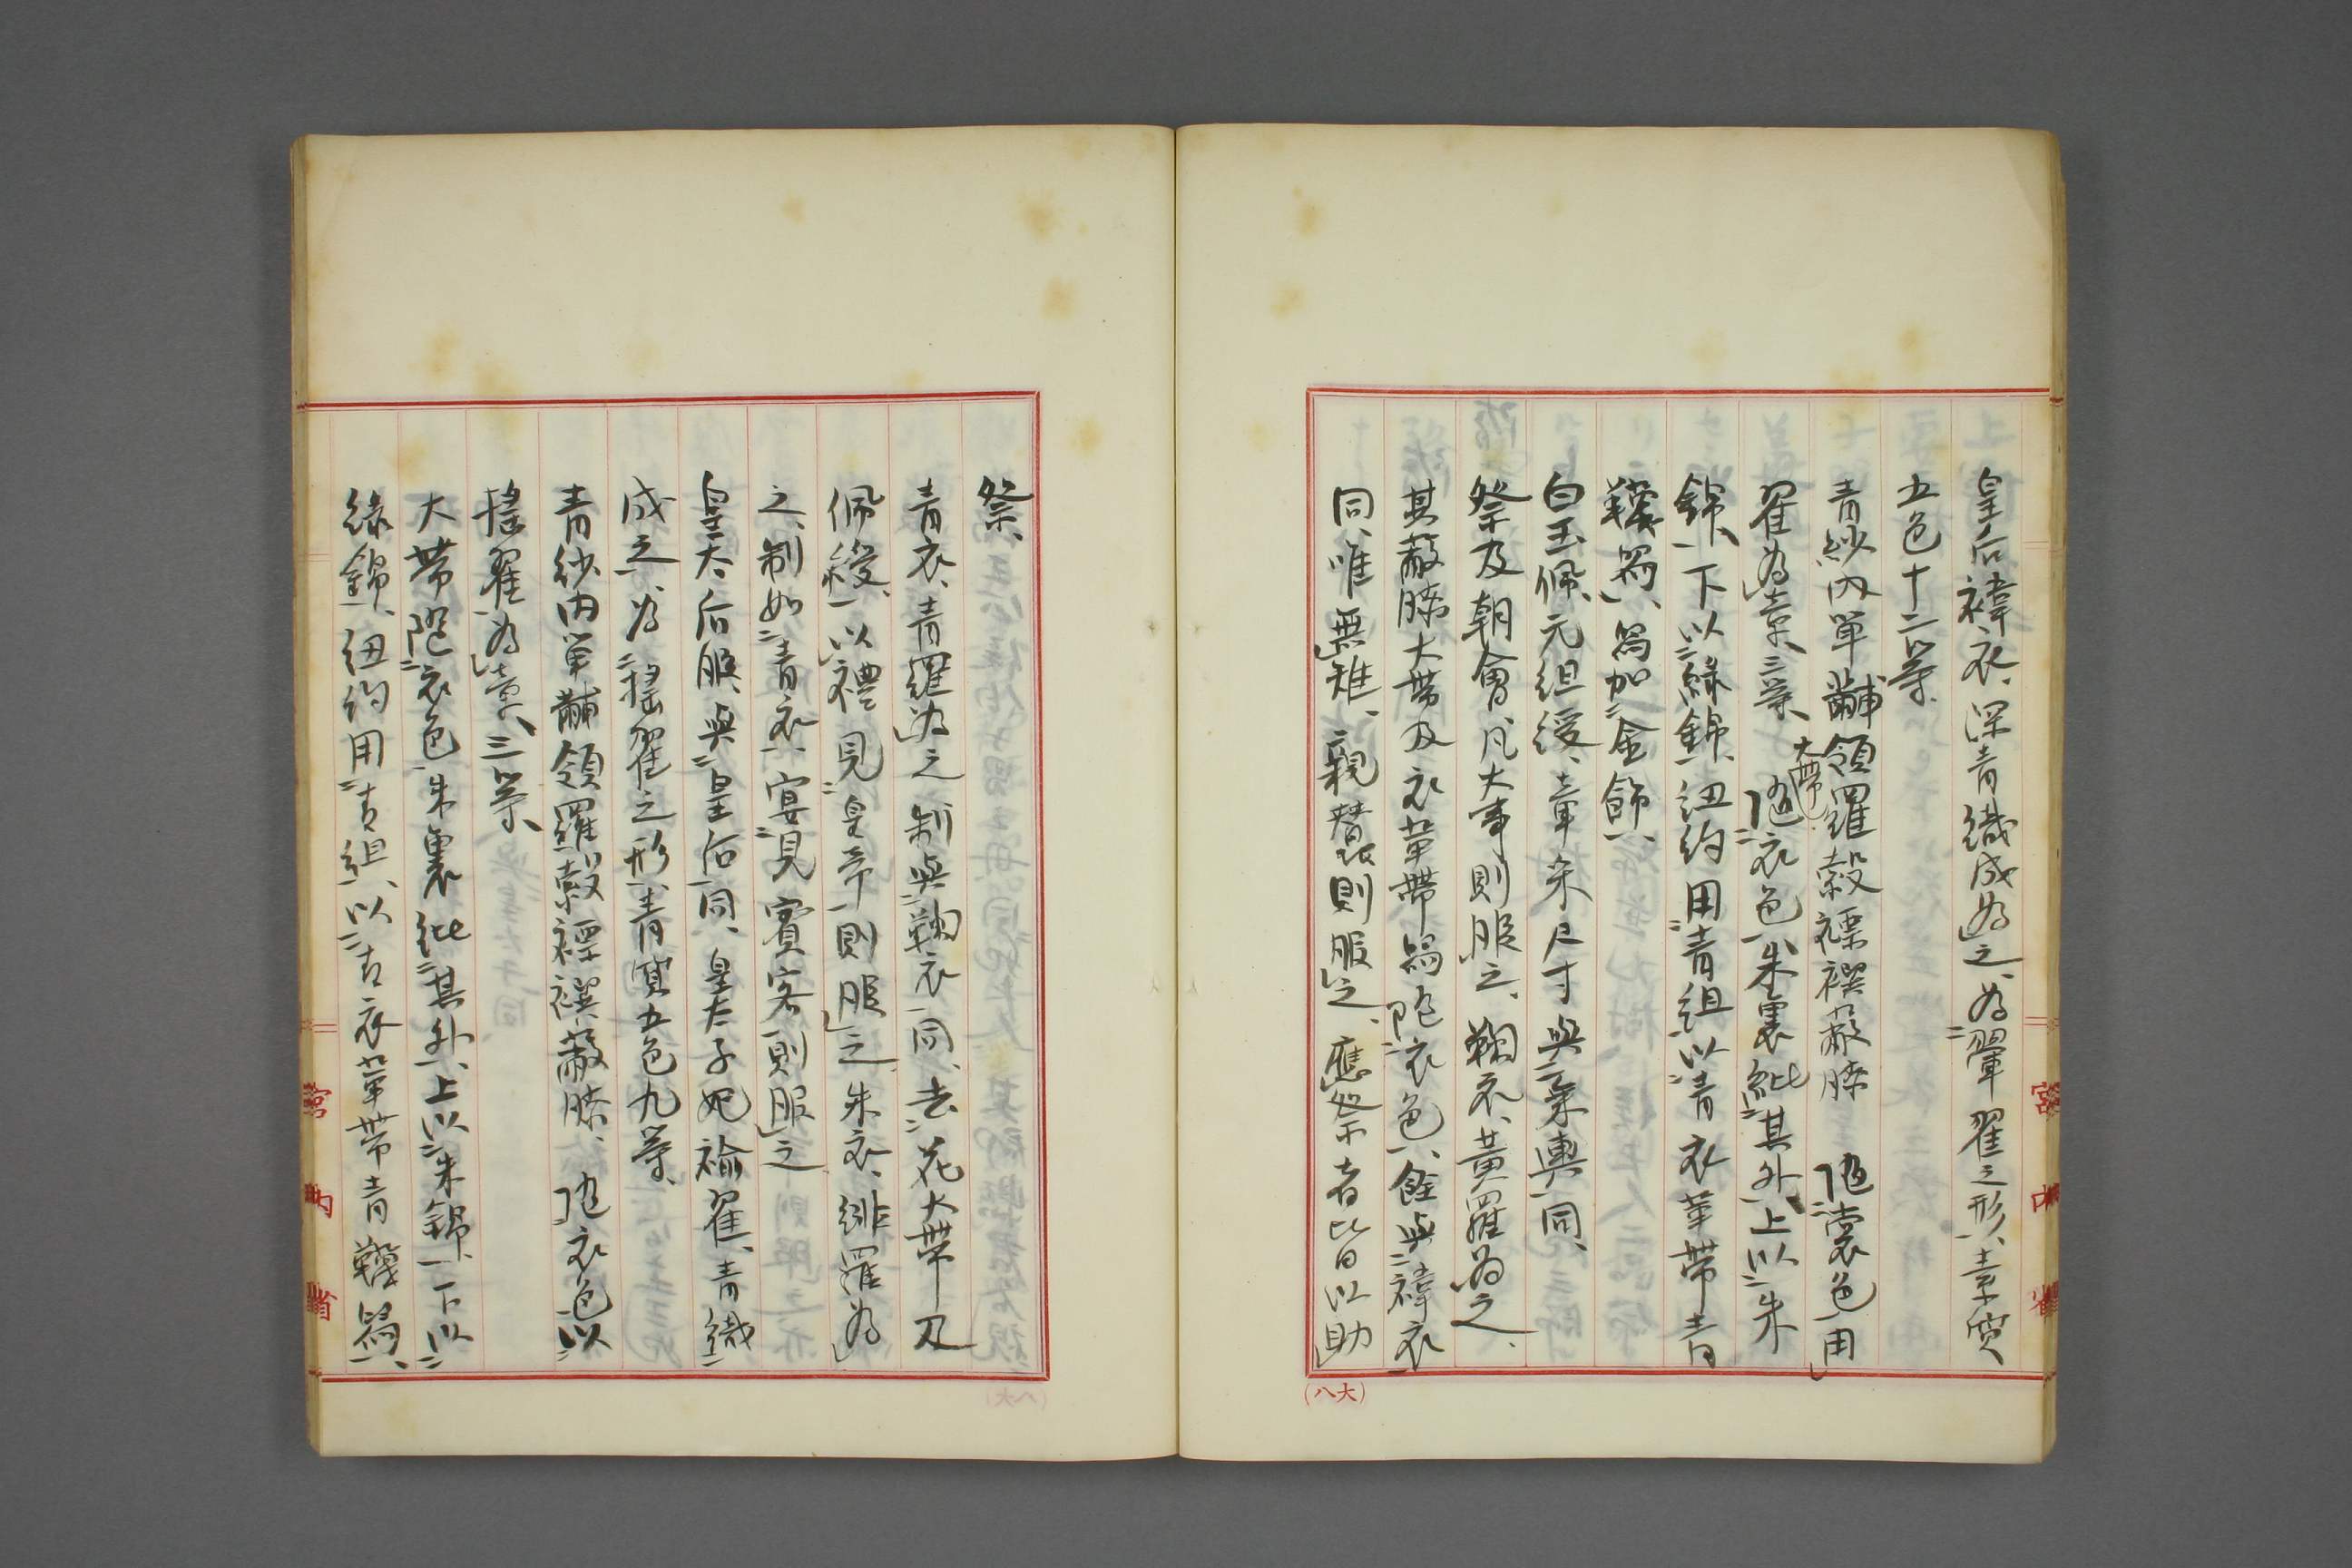 皇后褘衣、深青織成為之、為翬翟之形、素質
五色十二等、
青紗内單黼領羅縠褾襈蔽膝 随裳色用
翟為章、三等、大帶随衣色朱裏紕其外、上以朱
錦、下以緑錦、紐約用青組以青衣革帶青
韈舄、舄加金飾、
白玉佩元組綬、章采尺寸與乘輿同、
祭及朝會凡大事則服之、鞠衣、黄羅為之、
其蔽膝大帶及衣革帶舄随衣色、餘與褘衣
同、唯無雉、親蠶則服之、應祭者皆以助
(八大)
祭、
青衣、青羅為之制與鞠衣同、去花大帶及
佩綬、以禮見皇帝則服之朱衣、緋羅為
之、制如青衣、宴見賓客則服之
皇太后服、與皇后同、皇太子妃褕翟、青織
成之、為揺翟之形、青質五色九等、
青紗内單黼領羅縠褾襈蔽膝、随衣色以
揺翟為章、三等、
大帶随衣色朱裏紕其外、上以朱錦、下以
緑錦、紐約用青組、以青衣革帶青韈舄、
宮内省
宮内省